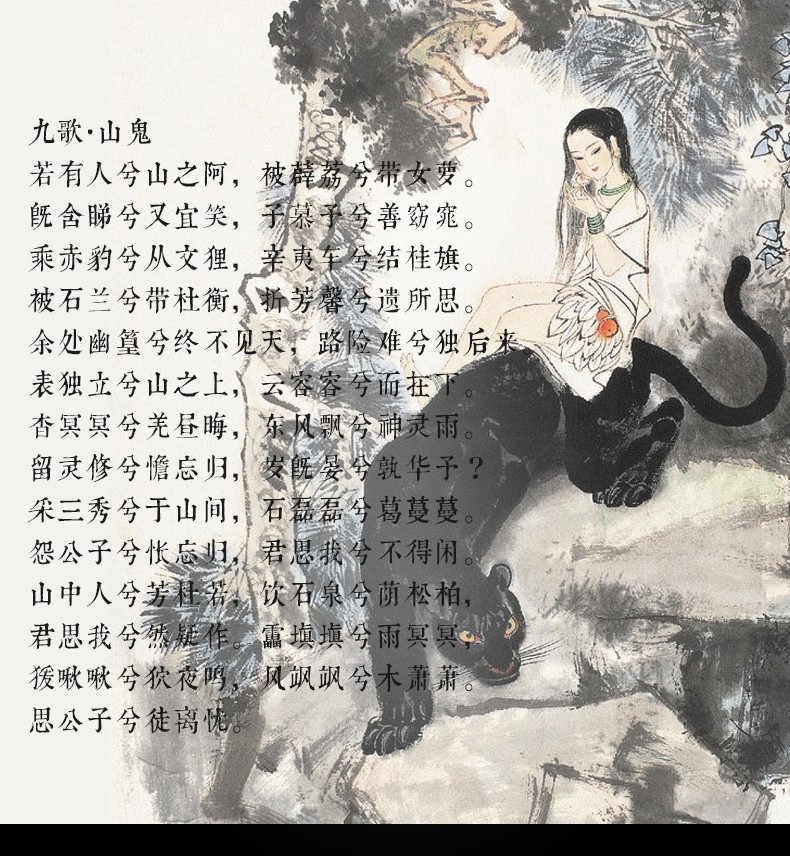 九歌·山鬼
若有人兮山之阿，被薜荔兮带女萝。
既含睇兮又宜笑，子慕予兮善窈窕。
乘赤豹兮从文狸，辛夷车兮结桂旗。
被石兰兮带杜衡，折芳馨兮遗所思。
余处幽篁兮终不见天，路险难兮独后来。
表独立兮山之上，云容容兮而在下。
杳冥冥兮羌昼晦，东风飘兮神灵雨。
留灵修兮憺忘归，岁既晏兮孰华予？
采三秀兮于山间，石磊磊兮葛蔓蔓。
怨公子兮怅忘归，君思我兮不得闲。
山中人兮芳杜若，饮石泉兮荫松柏，
君思我兮然疑作。靁填填兮雨冥冥，
猨啾啾兮狖夜鸣，风飒飒兮木萧萧。
思公子兮徒离忧。